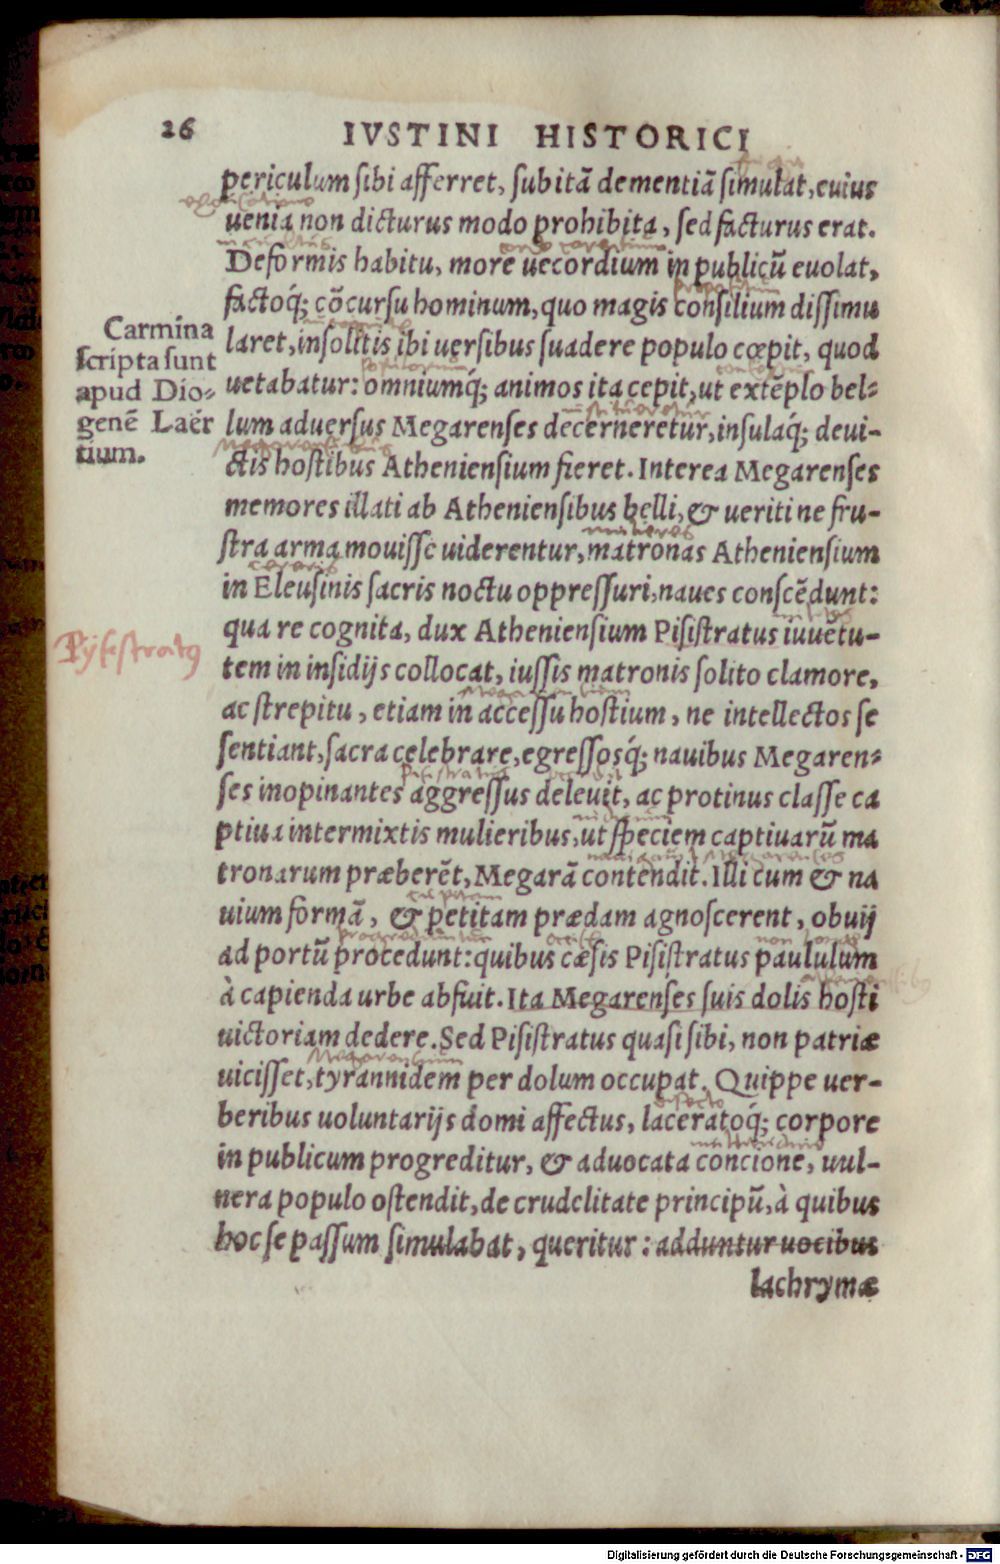 26 IVSTINI HISTORICI
periculum sibi afferret, subitã dementiã simulat, cuius
uenia non dicturus modo prohibita, sed facturus erat.
Deformis habitu, more uecordium in publicũ euolat,
factoq́; cõcursu hominum, quo magis consilium dissimu
laret, insolitis ibi uersibus suadere populo cœpit, quod
uetabatur: omniumq́; animos ita cepit, ut extẽplo bel-
lum aduersus Megarenses decerneretur, insulaq́; deui-
ctis hostibus Atheniensium fieret. Interea Megarenses
memores illati ab Atheniensibus belli, & ueriti ne fru-
stra arma mouisse uiderentur, matronas Atheniensium
in Eleusinis sacris noctu oppressuri, naues conscẽdunt:
qua re cognita, dux Atheniensium Pisistratus iuuẽtu-
tem in insidijs collocat, iussis matronis solito clamore,
ac strepitu, etiam in accessu hostium, ne intellectos se
sentiant, sacra celebrare, egressosq́; nauibus Megaren-
ses inopinantes aggressus deleuit, ac protinus classe ca
ptiua intermixtis mulieribus, ut speciem captiuarũ ma
tronarum præberẽt, Megarã contendit. Illi cum & na
uium formã, & petitam prædam agnoscerent, obuij
ad portũ procedunt: quibus cæsis Pisistratus paululum
à capienda urbe abfuit. Ita Megarenses suis dolis hosti
uictoriam dedere. Sed Pisistratus quasi sibi, non patriæ
uicisset, tyrannidem per dolum occupat. Quippe uer-
beribus uoluntarijs domi affectus, laceratoq́; corpore
in publicum progreditur, & aduocata concione, uul-
nera populo ostendit, de crudelitate principũ, à quibus
hoc se passum simulabat, queritur: adduntur uocibus
lachrymæ
Carmina
scripta sunt
apud Dio-
genẽ Laër
tium.
Pysistratus
mulieres
Megarensium
Pisistratus
Megarenses
Digitalisierung gefördert durch die Deutsche Forschungsgemeinschaft - DFG